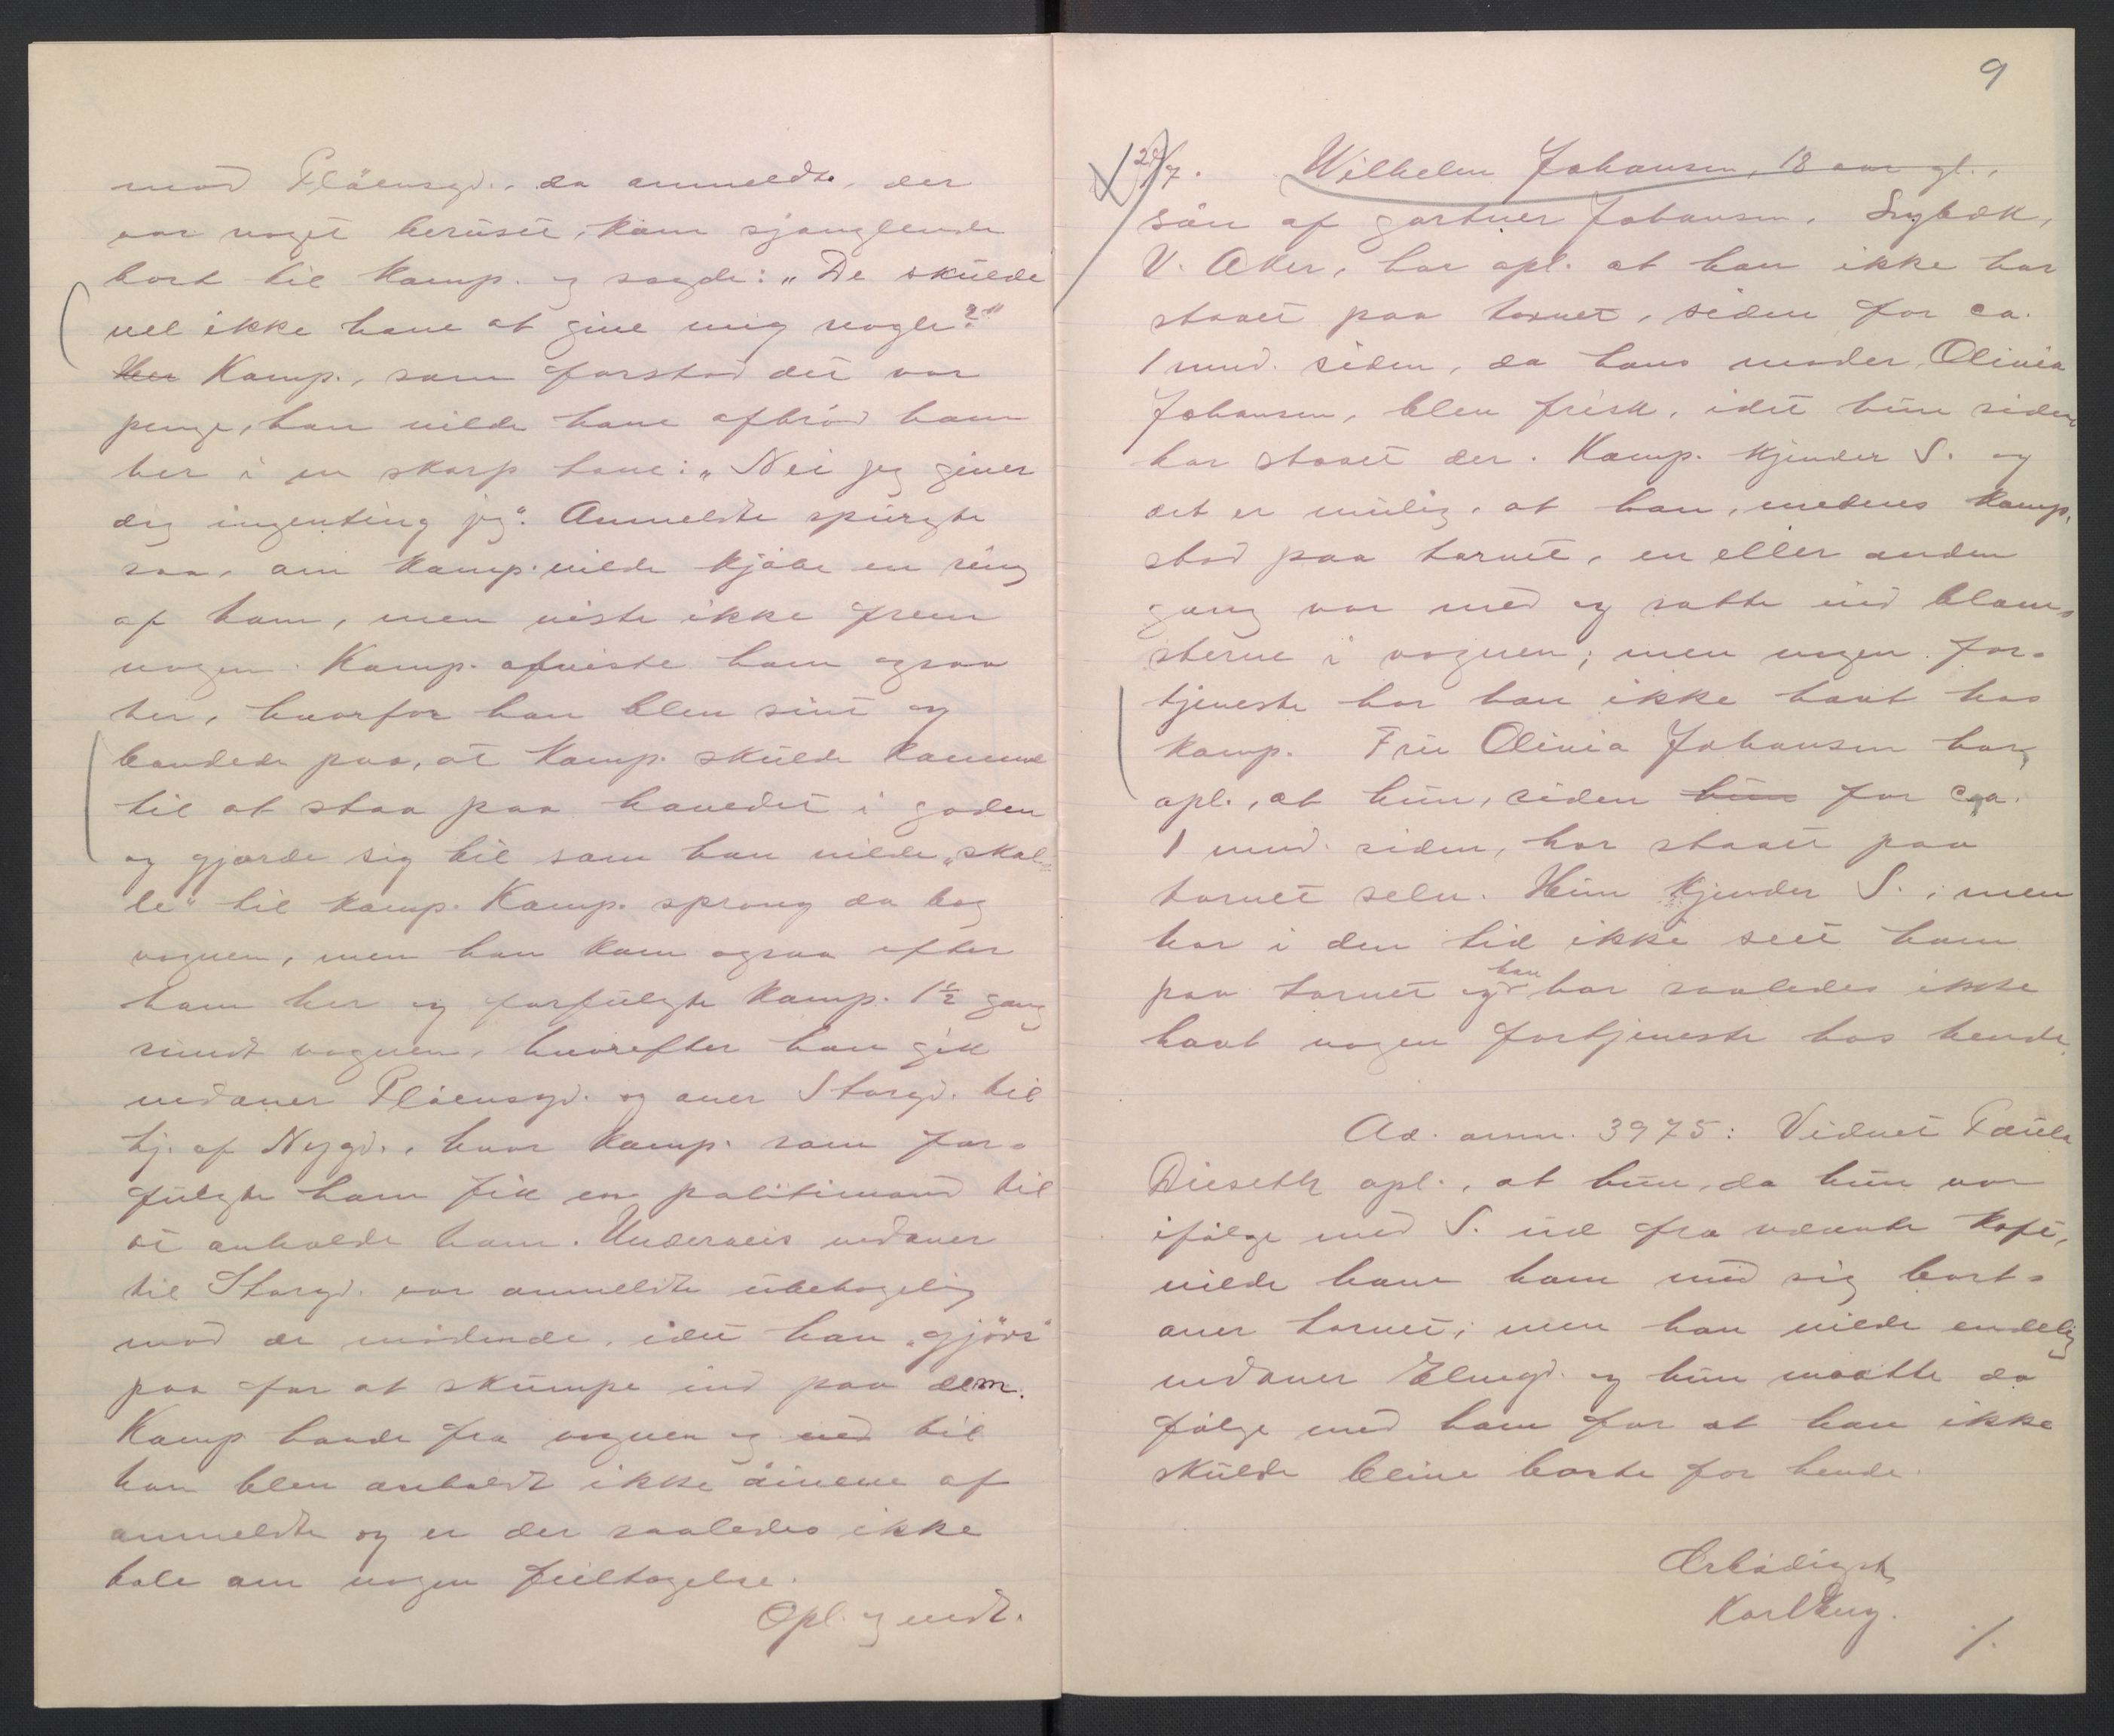 mod Pløensgd., da anmeldte, der
var noget beruset, kom sjanglende
bort til Komp. og sagde: „De skulde
vel ikke have at give mig nogle?"
Her Komp., som forstod det var
penge, han vilde have afbrød ham
her i en skarp tone: „Nei jeg giver
dig ingenting jeg". Anmeldte spurgte
saa, om Komp. vilde kjøbe en ring
af ham, men viste ikke frem
nogen. Komp. afviste ham ogsaa
her, hvorfor han blev sint og
bandede paa, at Komp. skulde komme
til at staa paa hovedet i gaden
og gjorde sig til som han vilde „skal-
le" til Komp. Komp. sprang da bag
vognen, men han kom ogsaa efter
ham her og forfulgte Komp. 1½ gang
rundt vognen, hvorefter han gik
nedover Pløensgd. og over Storgd. til
hj. af Nygd., hvor Komp. som for-
fulgte ham fik en politimand til
at anholde ham. Underveis nedover
til Storgd. var anmeldte ubehagelig
mod de mødende, idet han „gjøvs"
paa for at skumpe ind paa dem.
Komp havde fra vognen og ned til
han blev anholdt ikke øinene af
anmeldte og er der saaledes ikke
tale om nogen feiltagelse.
Opl. og vedt.
9
29/7. Wilhelm Johansen, 18 aar gl.,
søn af gartner Johansen,
V. Aker, har opl. at han ikke har
staaet paa torvet, siden for ca.
1 mnd. siden, da hans moder, Olivia
Johansen, blev frisk, idet hun siden
har staaet der. Komp. kjender S. og
det er mulig, at han, medens Komp.
stod paa torvet, en eller anden
gang var med og satte ind blom-
sterne i vognen; men nogen for-
tjeneste har han ikke havt hos
Komp. Fru Olivia Johansen har
opl., at hun, siden hun for ca.
1 mnd. siden, har staaet paa
torvet selv. Hun kjender S., men
har i den tid ikke seet ham
paa torvet og han har saaledes ikke
havt nogen fortjeneste hos hende.
Ad. anm. 3975: Vidnet Paula
Dieseth opl., at hun, da hun var
ifølge med S. ud fra nævnte kafe,
vilde have ham med sig bort-
over torvet; men han vilde endelig
nedover Elvegd. og hun maatte da
følge med ham for at han ikke
skulde blive borte for hende.
Ærbødigst
Karl
./.